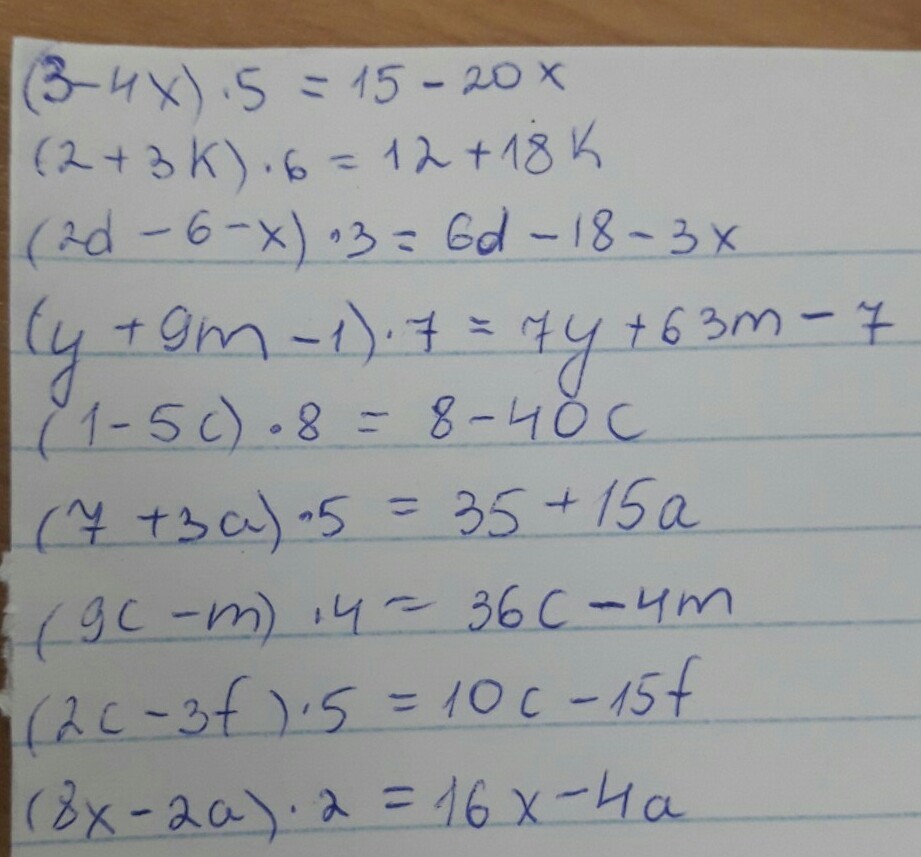 (3-4x)·5 = 15-20x
(2+3k)·6 = 12+18k
(2d-6-x)·3 = 6d-18-3x
(y+9m-1)·7 = 7y+63m-7
(1-5c)·8 = 8-40c
(7+3a)·5 = 35+15a
(9c-m)·4 = 36c-4m
(2c-3f)·5 = 10c-15f
(8x-2a)·2 = 16x-4a